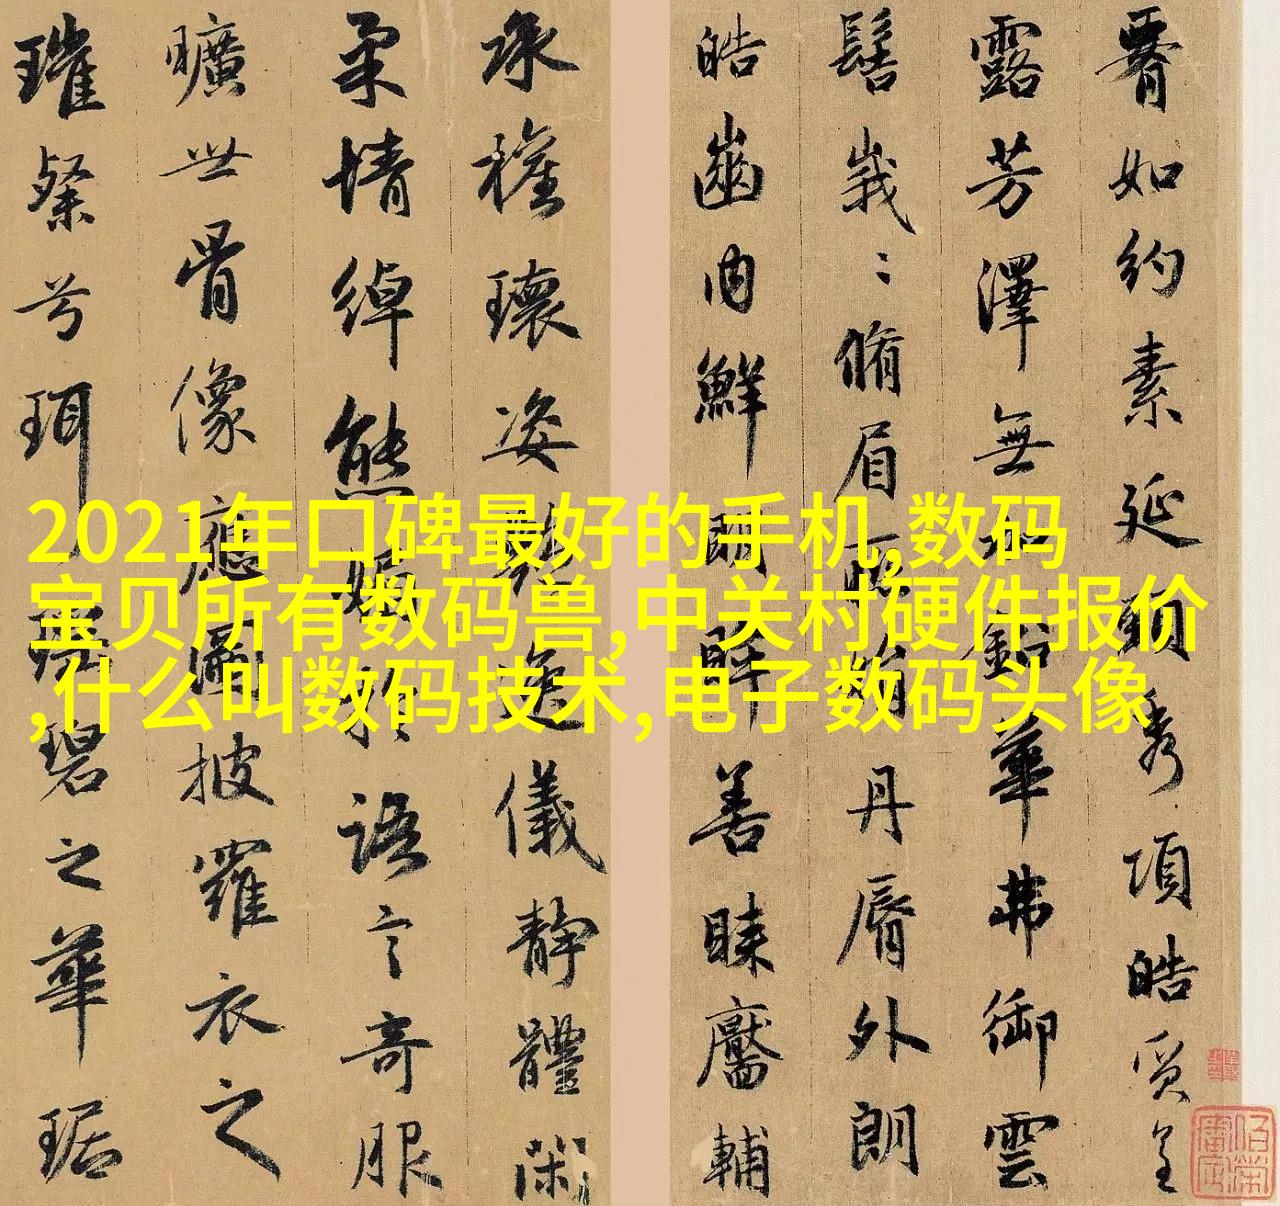 2021年口碑最好的手机,数码
宝贝所有数码兽,中关村硬件报价
,什么叫数码技术,电子数码头像
腰如約素延頸秀項皓質呈
露芳澤無加鉛華弗御雲
髻峩〻脩眉聯娟丹脣外朗
皓齒内鮮明眸善睞靨輔
承權瓌姿艷逸儀靜體閑
柔情綽態媚於語言奇服
曠世骨像應圖披羅衣之
璀粲兮珥瑤碧之華琚